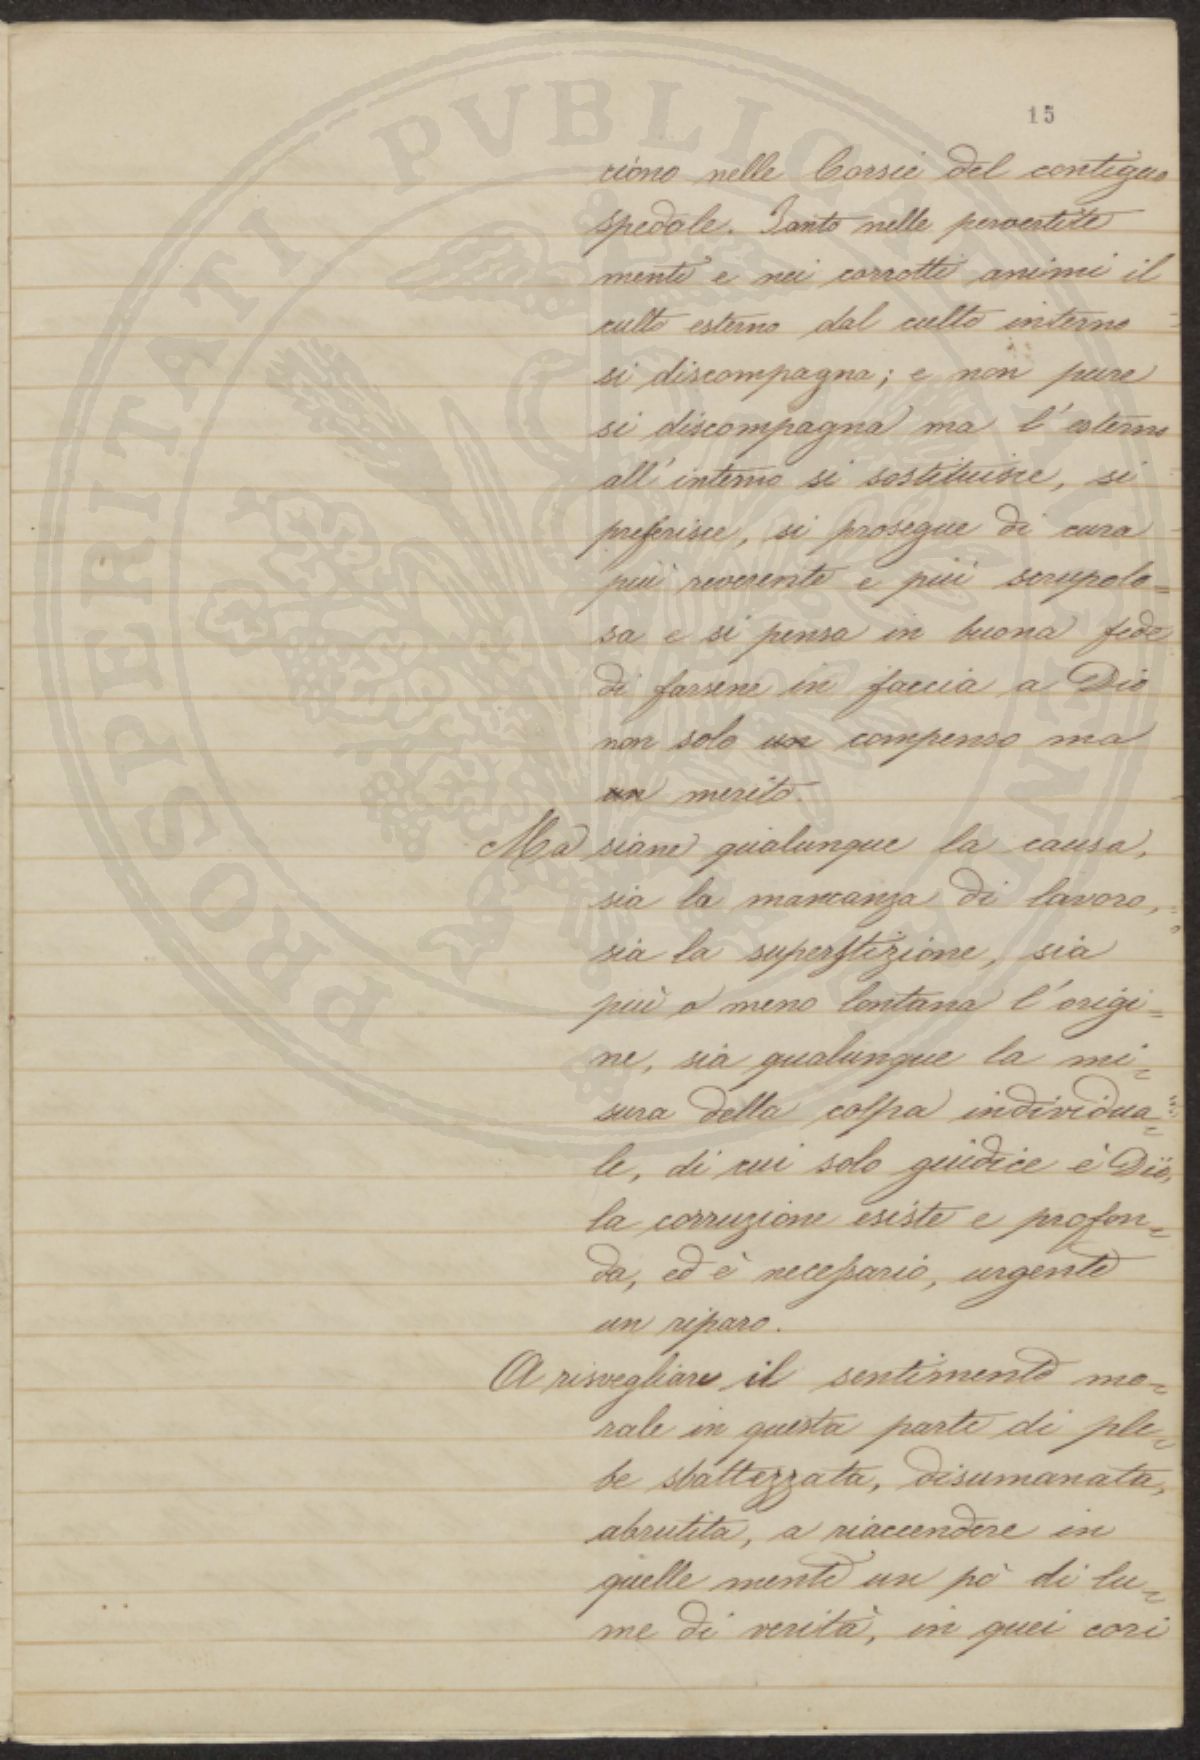 15
riono nelle Corsie del contiguo
spedale. Tanto nelle pervertite
menti e nei corrotti animi il
culto esterno dal culto interno
si discompagna; e non pure
si discompagna ma l'esterno
all'interno si sostituisce, si
preferisce, si prosegue di cura
più reverente e più scrupolo=
sa e si pensa in buona fede
di farsene in faccia a Dio
non solo un compenso ma
un merito.
Ma siane qualunque la causa,
sia la mancanza di lavoro,
sia la superstizione, sia
più o meno lontana l'origi=
ne, sia qualunque la mi=
sura della colpa individua=
le, di cui solo giudice è Dio,
la corruzione esiste e profon=
da, ed è necessario, urgente
un riparo.
A risvegliare il sentimento mo=
rale in questa parte di ple=
be sbattezzata, disumanata,
abrutita, a riaccendere in
quelle menti un pò di lu=
me di verità, in quei cori
PROSPERITATI PVBLICAE AVGENDAE